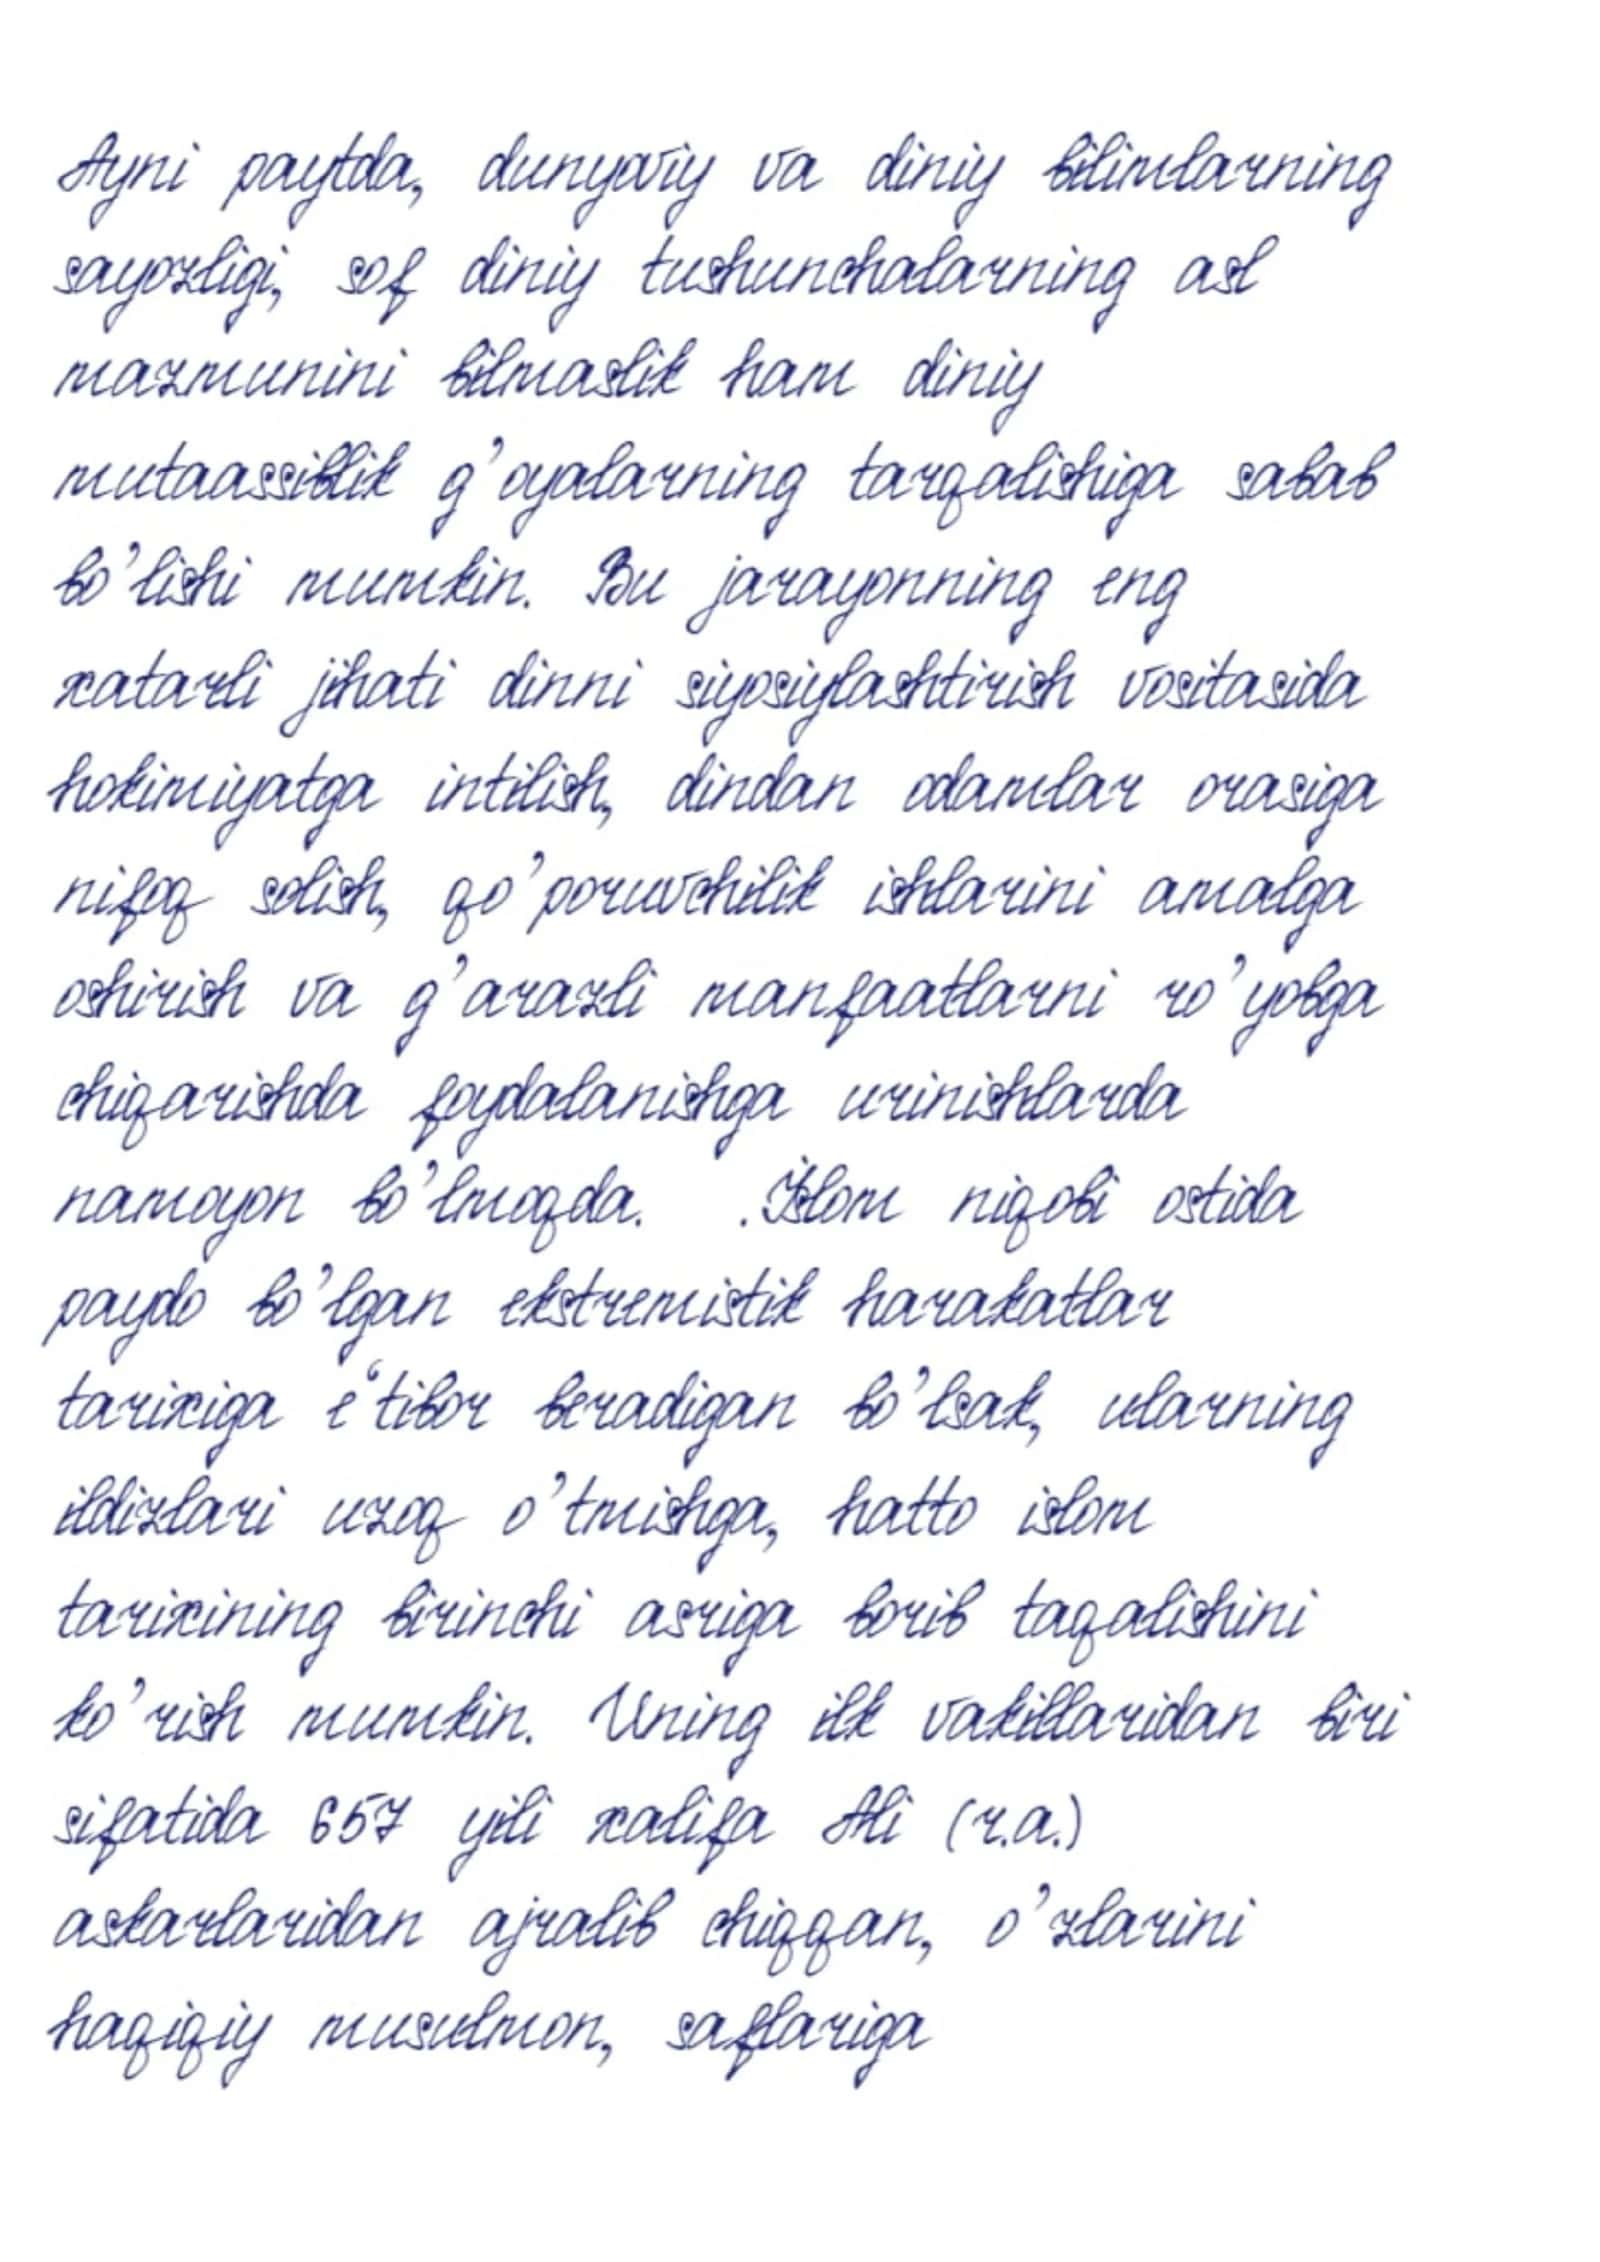 Ayni paytda, dunyoviy va diniy bilimlarning
sayozligi, sof diniy tushunchalarning asl
mazmunini bilmaslik ham diniy
mutaassiblik g’oyalarning tarqalishiga sabab
bo’lishi mumkin. Bu jarayonning eng
xatarli jihati dinni siyosiylashtirish vositasida
hokimiyatga intilish, dindan odamlar orasiga
nifoq solish, qo’poruvchilik ishlarini amalga
oshirish va g’arazli manfaatlarni ro’yobga
chiqarishda foydalanishga urinishlarda
namoyon bo’lmoqda. .Islom niqobi ostida
paydo bo’lgan ekstremistik harakatlar
tarixiga e‘tibor beradigan bo’lsak, ularning
ildizlari uzoq o’tmishga, hatto islom
tarixining birinchi asriga borib taqalishini
ko’rish mumkin. Uning ilk vakillaridan biri
sifatida 657 yili xalifa Ali (r.a.)
askarlaridan ajralib chiqqan, o’zlarini
haqiqiy musulmon, saflariga